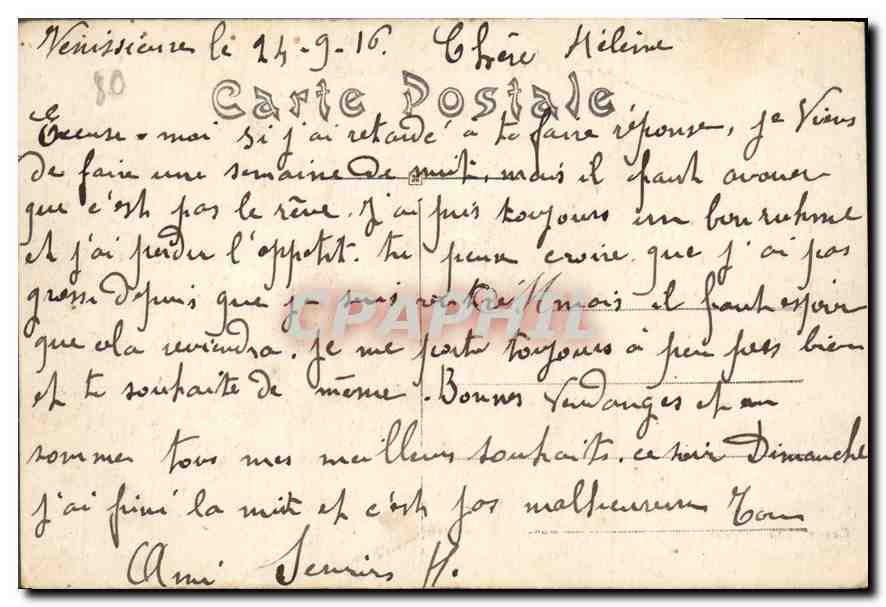 Vénissieux le 24-9-16. Chère Hélène
80
Carte Postale
Excuse-moi si j'ai retardé a te faire réponse, je viens
de faire une semaine de nuit, mais il faut avouer
que c'est pas le rêve. J'ai pris toujours un bon ruhme
et j'ai perdu l'appetit. tu peux croire que j'ai pas
grossi depuis que je suis rentré mais il faut espoir
que cela reviendra. je me porte toujours à peu pres bien
et te souhaite de même. Bonnes Vendanges et en
somme tous mes meilleurs souhaits. ce soir Dimanche
j'ai fini la nuit et c'est pas malheureux Ton
Ami H.
CPAPHIL